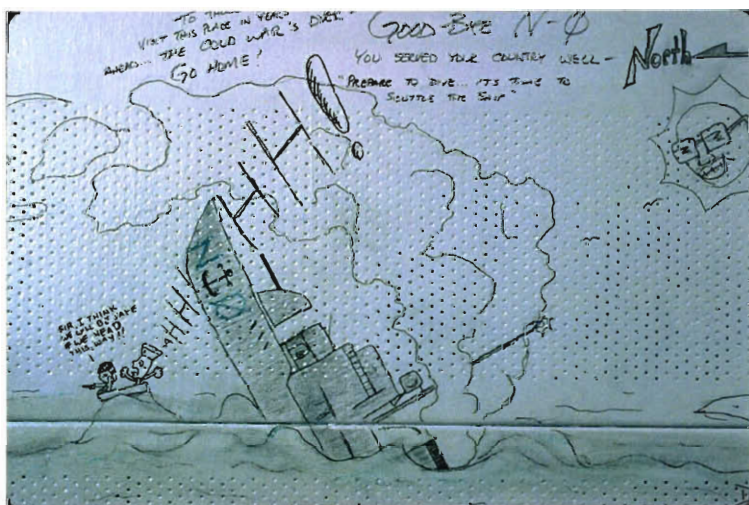 TO THOSE
VISIT THIS PLACE IN YEARS
AHEAD... THE COLD WAR'S OVER.
GO HOME!
GOOD-BYE N-Ø
YOU SERVED YOUR COUNTRY WELL -
"PREPARE TO DIVE... IT'S TIME TO
SCUTTLE THE SHIP"
North
SIR, I THINK
WE WILL BE SAFE
IF WE HEAD
THIS WAY!!
AHHHHHHH!
N